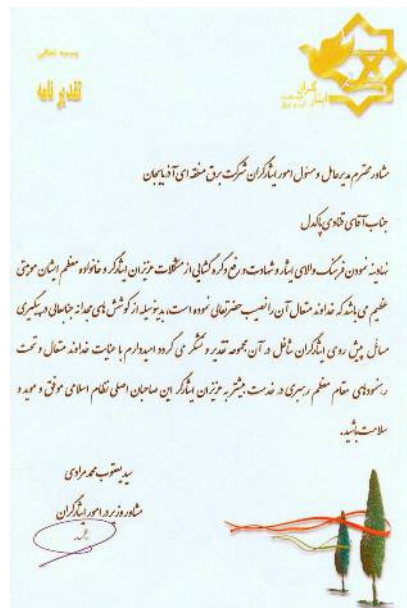 بسمه تعالی
تقدیر نامه
ایثارگران
مشاور محترم مدیرعامل و مسئول امور ایثارگران شرکت برق منطقه ای آذربایجان
جناب آقای قنادی پاکدل
نهادینه نمودن فرهنگ والای ایثار و شهادت و رفع و گره گشایی از مشکلات عزیزان ایثارگر و خانواده معظم ایشان موهبتی
عظیم می باشد که خداوند متعال آن را نصیب حضرتعالی نموده است، بدینوسیله از کوشش های مجدانه جنابعالی در پیگیری
مسائل پیش روی ایثارگران شاغل در آن مجموعه تقدیر و تشکر می گردد امیدوارم با عنایات خداوند متعال و تحت
رهنمودهای مقام معظم رهبری در خدمت بیشتر به عزیزان ایثارگر این صاحبان اصلی نظام اسلامی موفق و موید و
سلامت باشید.
سید یعقوب محمدمرادی
مشاور وزیر در امور ایثارگران